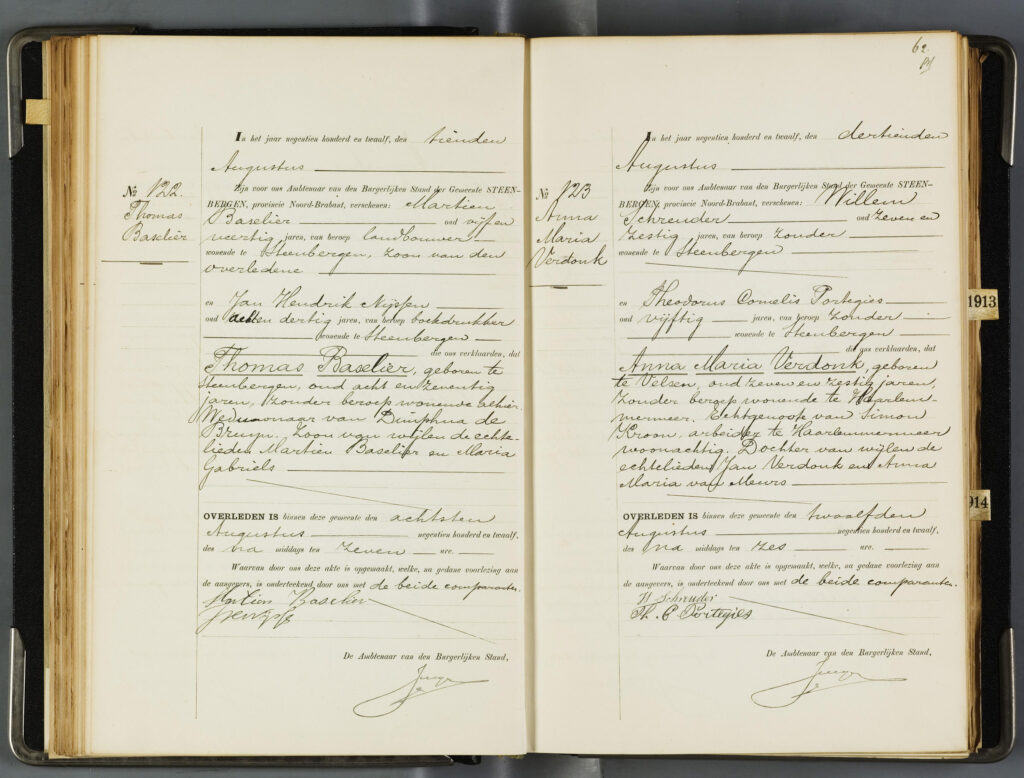 In het jaar negentien honderd en twaalf, den tienden
Augustus
zijn voor ons Ambtenaar van den Burgerlijken Stand der Gemeente STEEN-
No 122.
BERGEN, provincie Noord-Brabant, verschenen: Martien
Thomas
Baselier oud vijf en
Baselier
veertig jaren, van beroep landbouwer
wonende te Steenbergen, zoon van den
overledene
en Jan Hendrik Nijssen
oud acht en dertig jaren, van beroep boekdrukker
wonende te Steenbergen
die ons verklaarden, dat
Thomas Baselier, geboren te
Steenbergen, oud acht en zeventig
jaren, zonder beroep wonende alhier.
Weduwnaar van Dimphna de
Bruyn. Zoon van wijlen de echte-
lieden Martien Baselier en Maria
Gabriels
OVERLEDEN IS binnen deze gemeente den achtsten
Augustus negentien honderd en twaalf,
des na middags ten zeven ure.
Waarvan door ons deze akte is opgemaakt, welke, na gedane voorlezing aan
de aangevers, is onderteekend door ons met de beide comparanten.
Martien Baselier
De Ambtenaar van den Burgerlijken Stand,
62
In het jaar negentien honderd en twaalf, den dertienden
Augustus
zijn voor ons Ambtenaar van den Burgerlijken Stand der Gemeente STEEN-
No 123
BERGEN, provincie Noord-Brabant, verschenen: Willem
Anna
Schreuder oud zeven en
Maria
zestig jaren, van beroep zonder
Verdonk
wonende te Steenbergen
en Theodorus Cornelis Portegies
oud vijftig jaren, van beroep zonder
wonende te Steenbergen
die ons verklaarden, dat
Anna Maria Verdonk, geboren
te Velsen, oud zeven en zestig jaren,
zonder beroep wonende te Haarlem-
mermeer. Echtgenoote van Simon
Kroon, arbeider te Haarlemmermeer
woonachtig. Dochter van wijlen de
echtelieden Jan Verdonk en Anna
Maria van Meurs
OVERLEDEN IS binnen deze gemeente den twaalfden
Augustus negentien honderd en twaalf,
des na middags ten zes ure.
Waarvan door ons deze akte is opgemaakt, welke, na gedane voorlezing aan
de aangevers, is onderteekend door ons met de beide comparanten.
W Schreuder
Th. C Portegies
De Ambtenaar van den Burgerlijken Stand,
1913
914